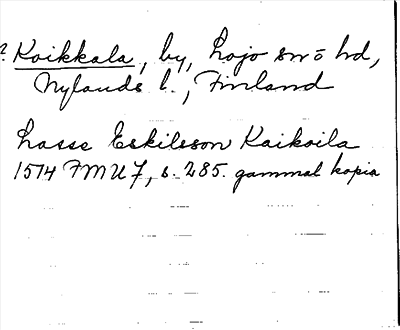 ? Koikkala, by, Lojo sn o hd,
Nylands l., Finland
Lasse Eskilsson Kaikoila
1514 FMU 7, s. 285. gammal kopia